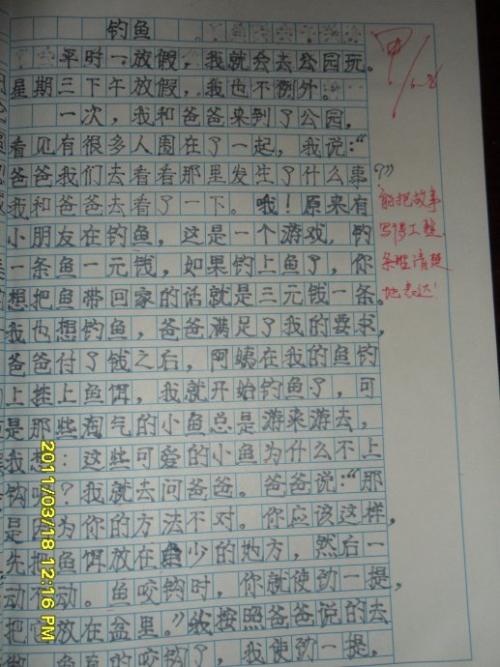 钓鱼
平时一放假，我就会去公园玩。
星期三下午放假，我也不例外。
一次，我和爸爸来到了公园，
看见有很多人围在了一起，我说：“
爸爸我们去看看那里发生了什么事？”
我和爸爸去看了一下。哦！原来有
小朋友在钓鱼，这是一个游戏，钓
一条鱼一元钱，如果钓上鱼了，你
想把鱼带回家的话就是三元钱一条。
我也想钓鱼，爸爸满足了我的要求，
爸爸付了钱之后，阿姨在我的鱼钓
上挂上鱼饵，我就开始钓鱼了，可
是那些淘气的小鱼总是游来游去，
我想：这些可爱的小鱼为什么不上
钩呢？我就去问爸爸。爸爸说：“那
是因为你的方法不对。你应该这样，
先把鱼饵放在鱼少的地方，然后一
动不动。鱼咬钩时，你就使劲一提，
把 放在盆里。”我按照爸爸说的去
鱼真的咬钩了，我使劲一提，
甲
能把故事
写得工整
条理清楚
地表达！
2011/03/18 12:16 PM